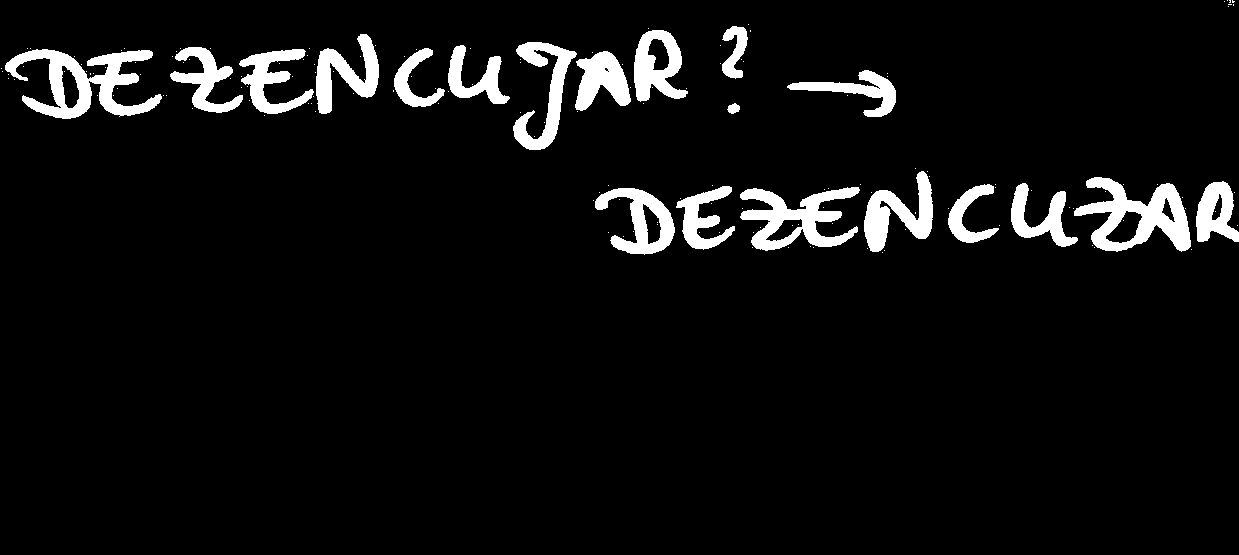 DEZENCUJAR? →
DEZENCUZAR